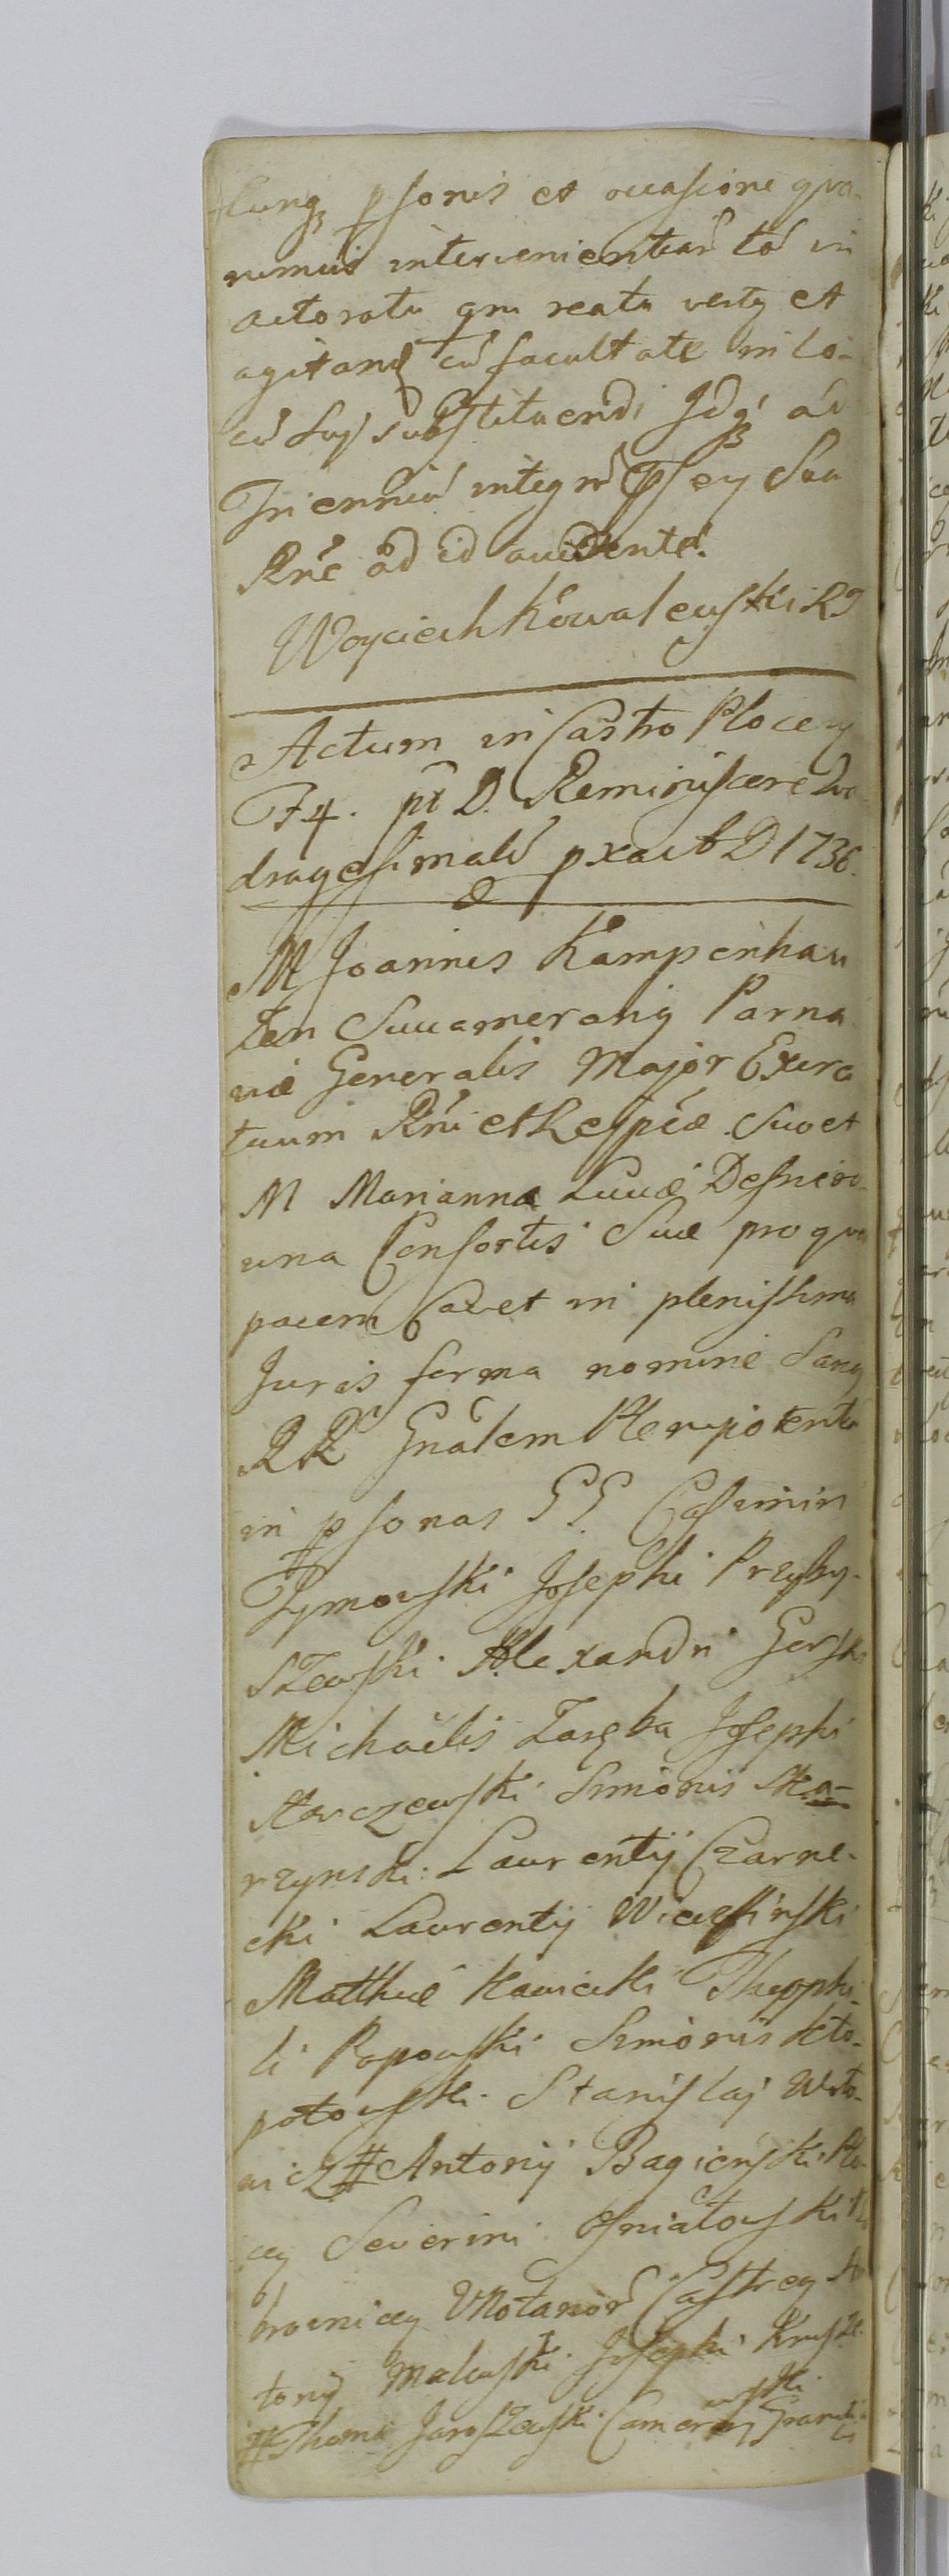 cunq3 psonis et occasione qva-
rumvis intervenientiar tã in
actoratu qm reatu vestg et
agitand cũ facultate in lo-
cũ Sug substituendi Jdq3 ad
Trienniũ integrũ Psey Sua
Rne ad id accedente.
Woyciech Kowalewski RJ
Actum in Castro Plocey
F 4. pt D. Reminiscere Qva
dragesimalẽ pxa et D 1736.
M Joannes Kampenhau
zen Succamerarig Parna
viæ Generalis Major Exerci
tuum Rni et Reipcæ Suo et
M Mariannæ Lucræ
una Consortis Suæ pro qva
pacem Cavet in plenissima
Juris forma nomine
RR Gnalem Plenipotentia
in psonas GG Casimiri
Tymowski Josephi Przyby-
szewski Alexandri Gorski
Michaelis Zaręba Josephi
Starczewski Simonis Ska-
rzynski Laurentij Czarne-
cki Laurentij Wiczfinski
Matthiæ Kawiecki Theophi-
li Popowski Simonis Kło-
potowski Stanislai Woło-
wicz # Antonij Bagieński Plo-
cey Severini Osniałowski
browniceg VNotarior Castreg An
tonij Malewski Josephi Krusze
wski
# Thomæ Jaroszewski Camerarg Granica
lis